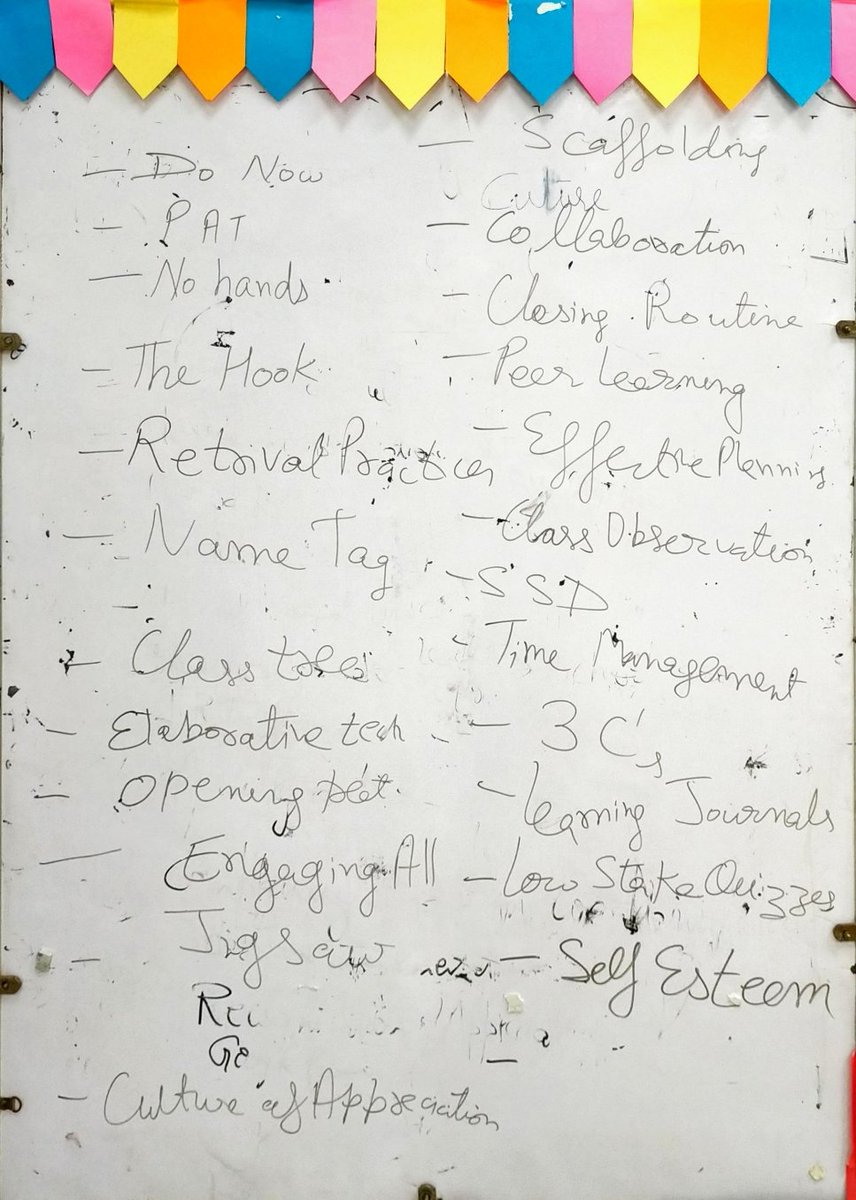 - Do Now
- PAT
- No hands
- The Hook
- Retrival Practices
- Name Tag
- Class
- Elaborative tech
- Opening
- Engaging All
Jigsaw
- Culture of Appreciation
- Scaffolding
Culture
- Collaboration
- Closing Routine
- Peer Learning
- Effective Planning
- Class Observation
- SSD
- Time Management
- 3 C's
- Learning Journals
- Low Stake Quizzes
- Self Esteem